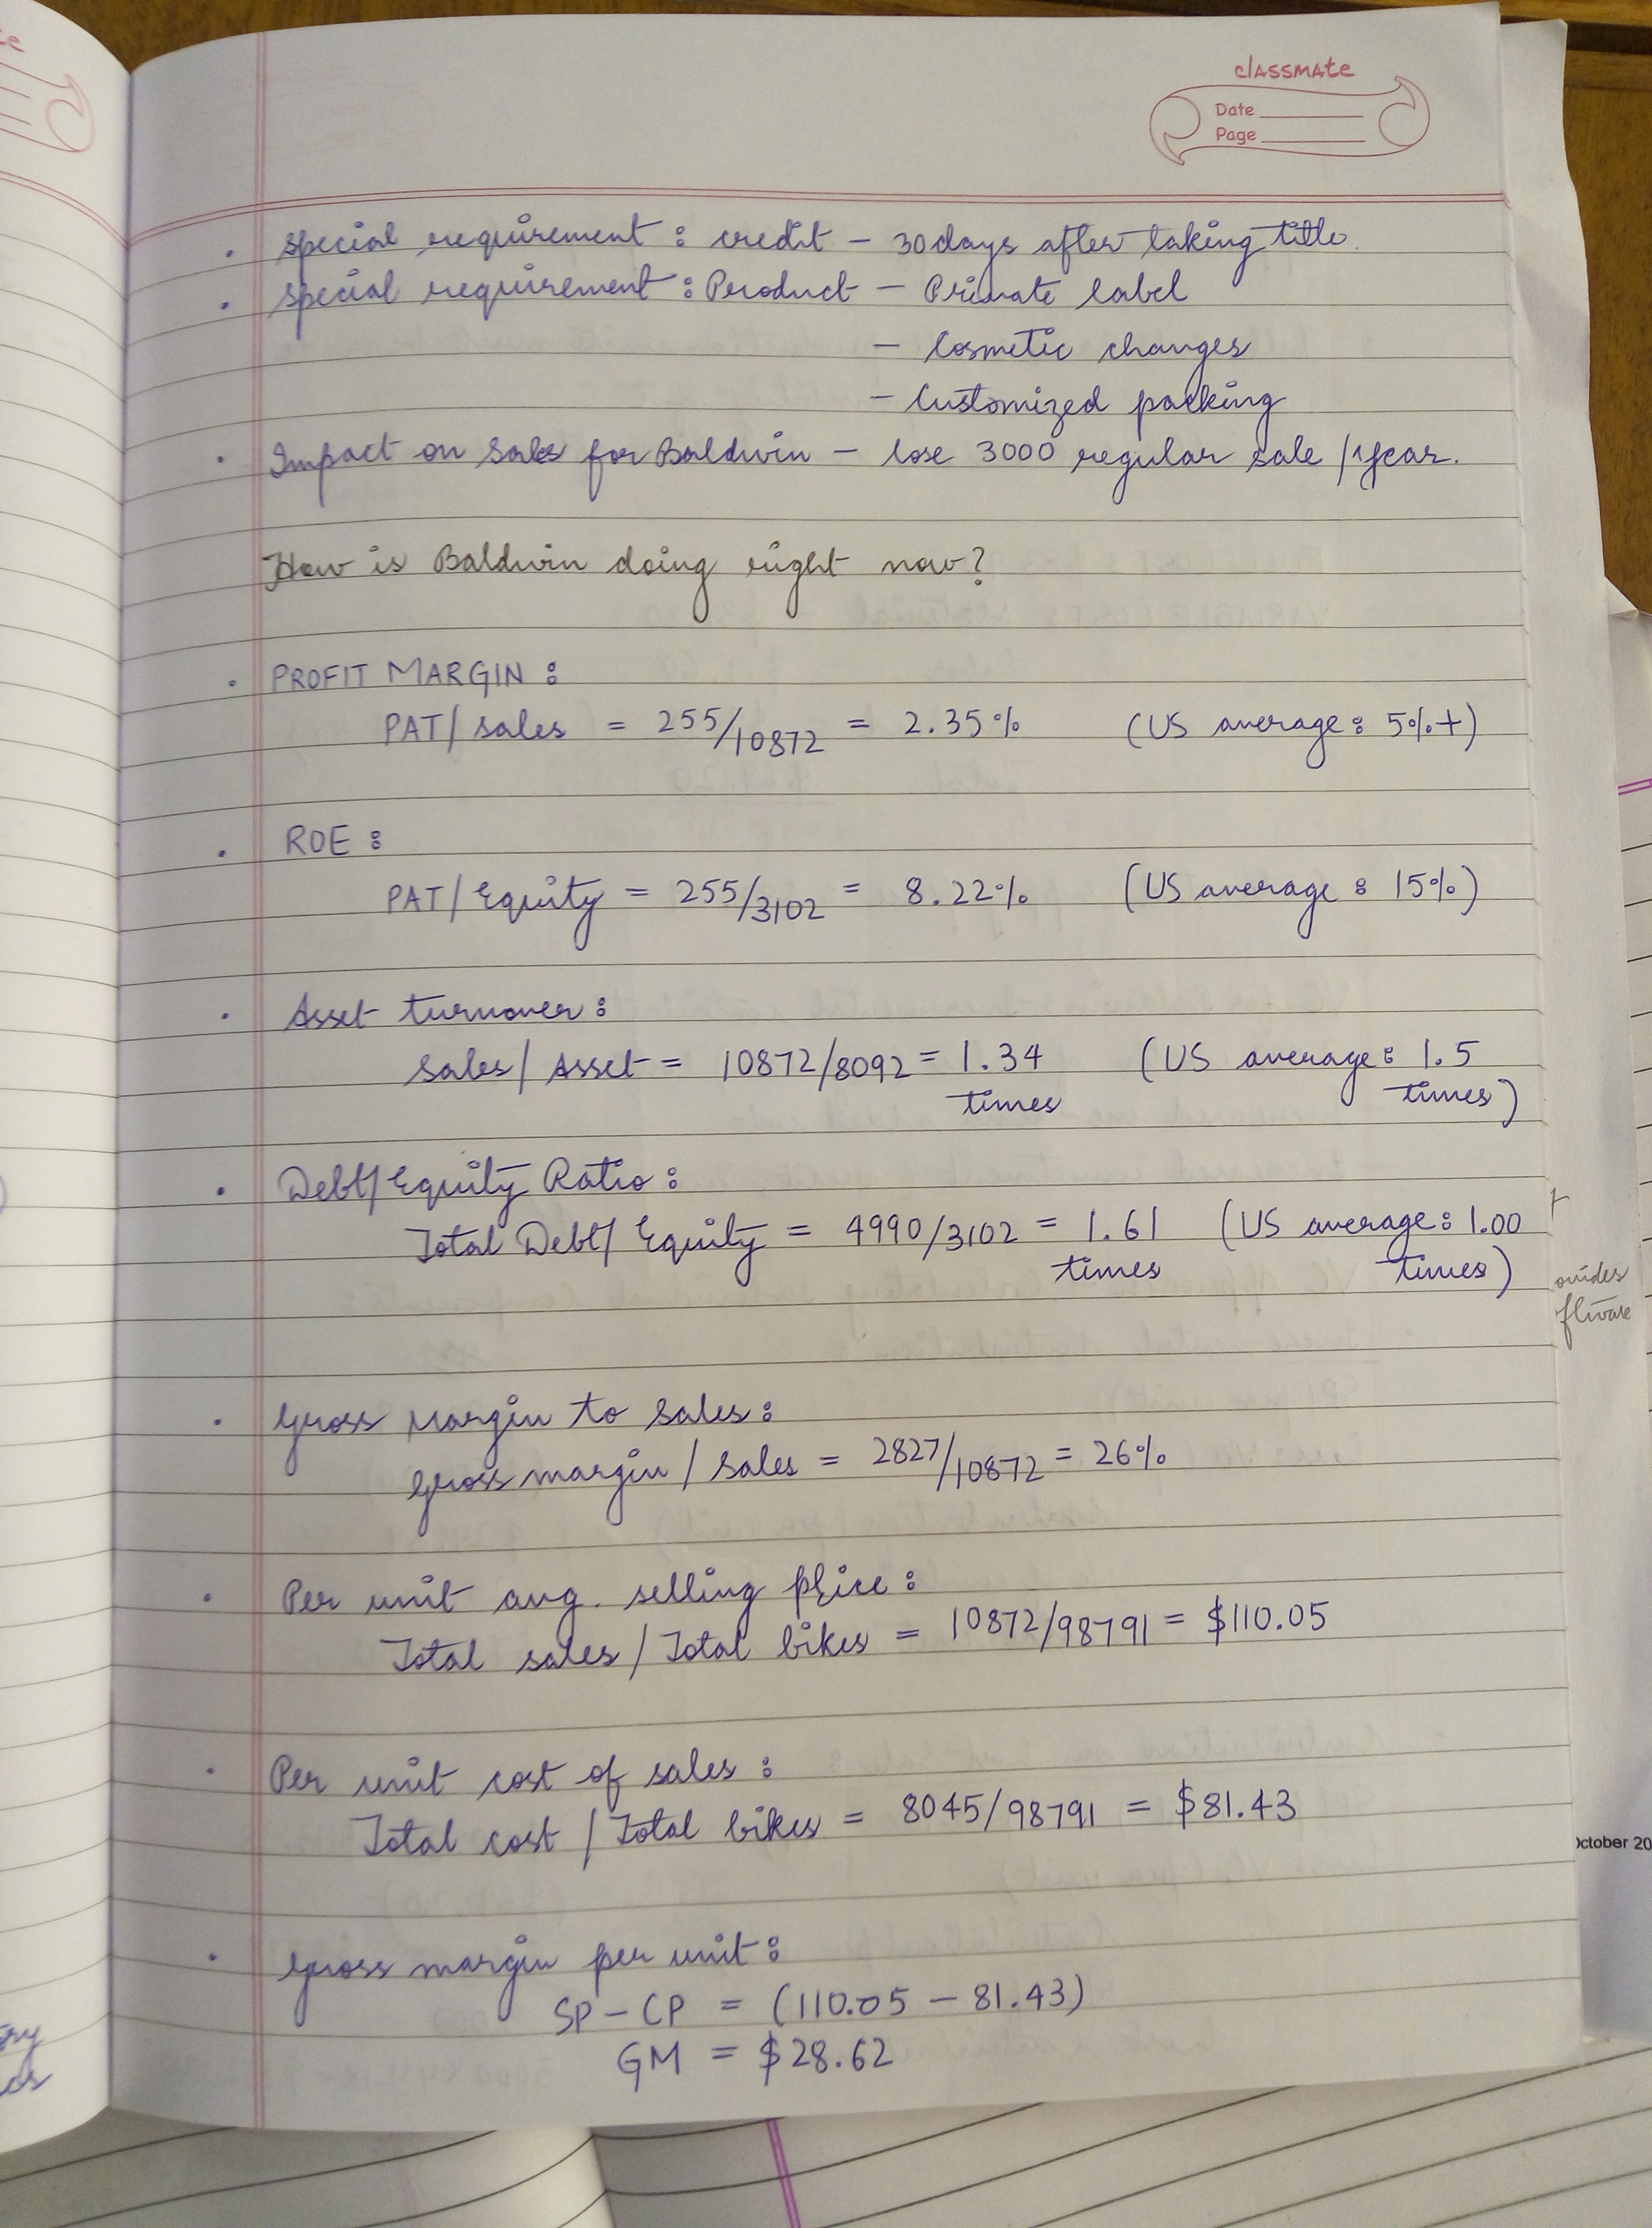 classmate
Date
Page
. special requirement : credit – 30 days after taking title.
. special requirement : Product – Private label
– Cosmetic changes
– Customized packing
. Impact on sales for Baldwin – lose 3000 regular sale /1year.
How is Baldwin doing right now?
. PROFIT MARGIN :
PAT/ sales = 255/10872 = 2.35% (US average : 5%+)
. ROE :
PAT/ Equity = 255/3102 = 8.22% (US average : 15%)
. Asset turnover :
Sales/ Asset = 10872/8092 = 1.34 (US average : 1.5
times times)
. Debt/Equity Ratio :
Total Debt/ Equity = 4990/3102 = 1.61 (US average : 1.00
times times)
. Gross Margin to sales :
Gross margin / sales = 2827/10872 = 26%
. Per unit avg. selling price :
Total sales / Total bikes = 10872/98791 = $110.05
. Per unit cost of sales :
Total cost / Total bikes = 8045/98791 = $81.43
. Gross margin per unit :
SP – CP = (110.05 – 81.43)
GM = $28.62